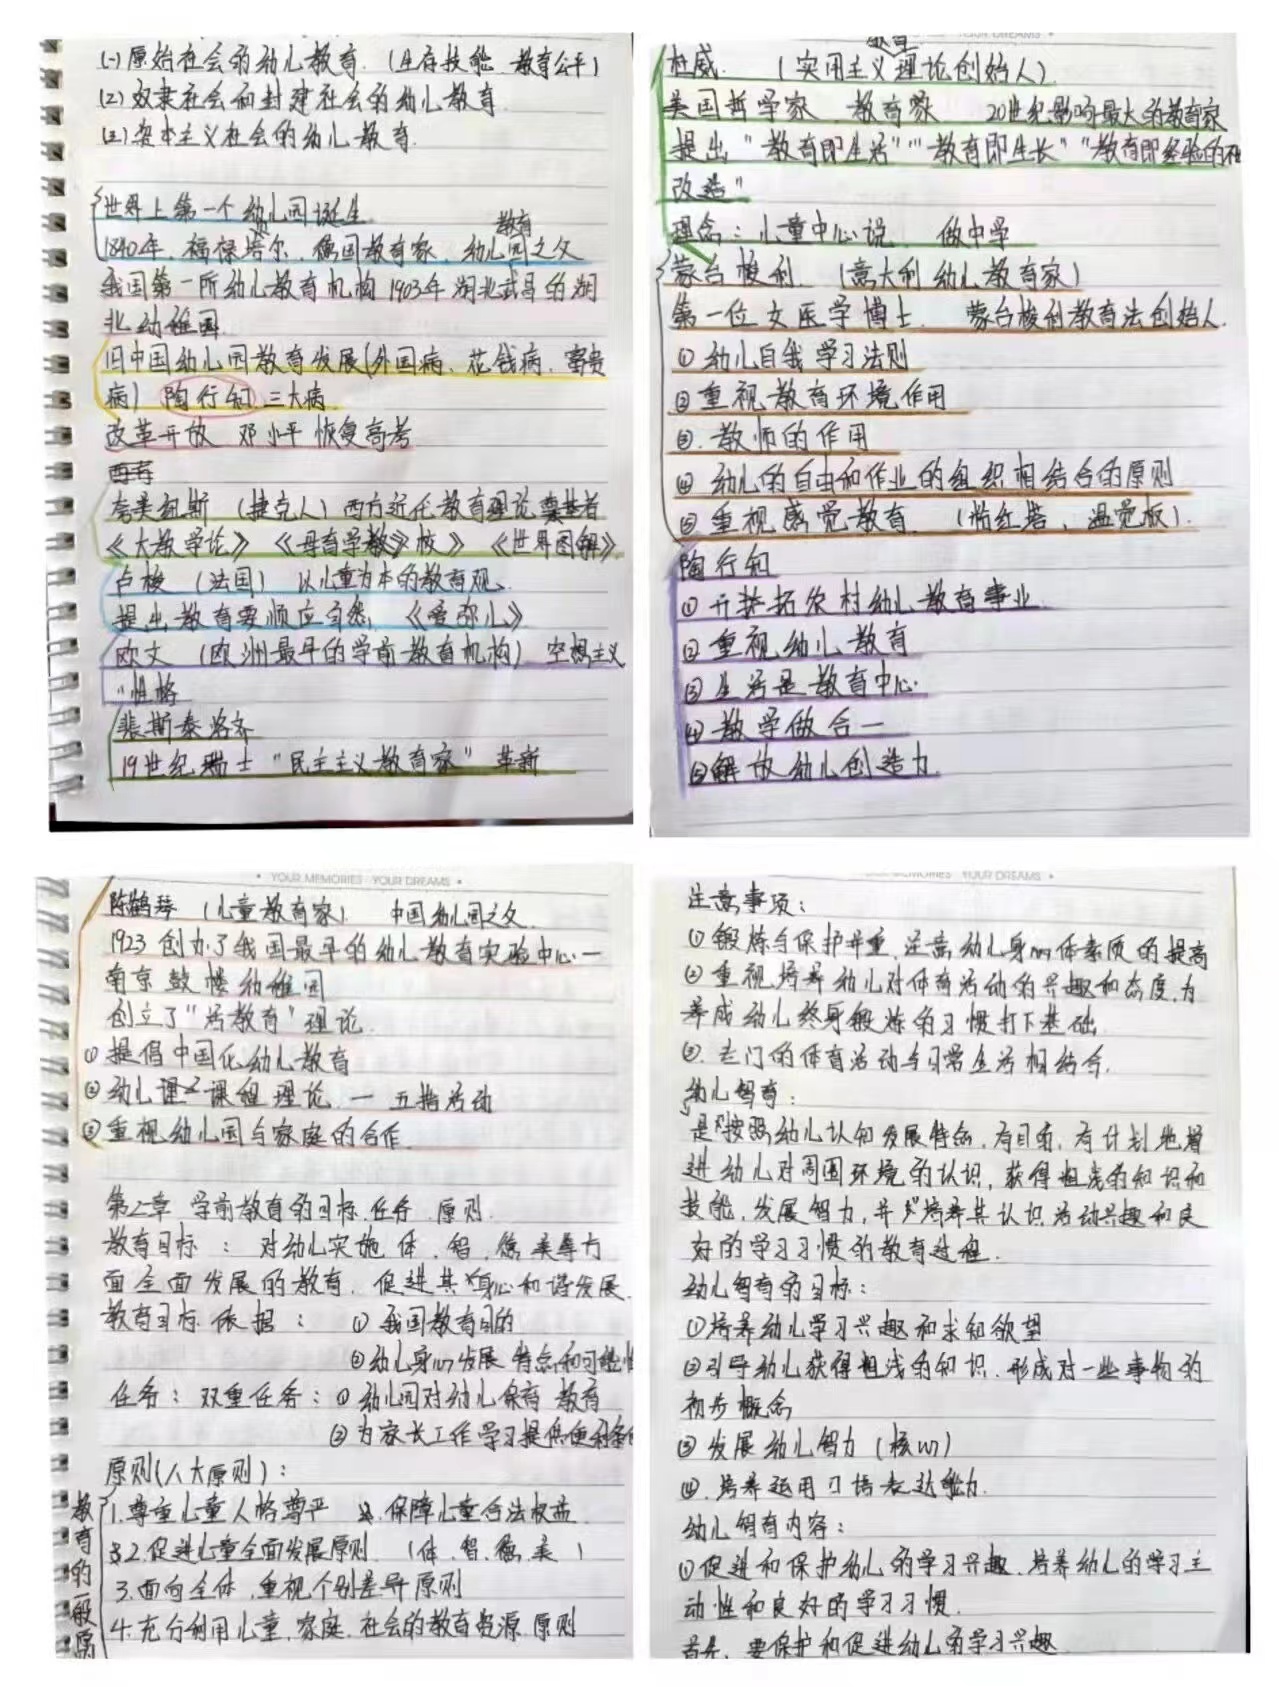 (一)原始社会的幼儿教育.(生存技能 教育公平)
(2)奴隶社会和封建社会的幼儿教育
(三)资本主义社会的幼儿教育.
世界上第一个幼儿园诞生.
教育
1840年.福禄培尔.德国教育家.幼儿园之父
我国第一所幼儿教育机构1903年湖北武昌的湖
北幼稚园.
旧中国幼儿园教育发展(外国病、花钱病、富贵
病) 陶行知 三大病.
改革开放 邓小平 恢复高考
夸美纽斯 (捷克人)西方近代教育理论奠基者
《大教学论》《母育学校》《世界图解》
卢梭 (法国) 以儿童为本的教育观.
提出教育要顺应自然 《爱弥儿》
欧文 (欧洲最早的学前教育机构) 空想主义
"性格
裴斯泰洛齐
19世纪瑞士"民主主义教育家" 革新
YOUR DREAMS
教育
杜威. (实用主义理论创始人)
美国哲学家 教育家 20世纪影响最大的教育家
提出"教育即生活""教育即生长""教育即经验的
改造"
理念:儿童中心说 做中学
蒙台梭利. (意大利幼儿教育家)
第一位女医学博士. 蒙台梭利教育法创始人.
①幼儿自我学习法则
②重视教育环境作用
③.教师的作用
④幼儿的自由和作业的组织相结合的原则
⑤重视感觉教育.(粉红塔、温觉板).
陶行知
①开拓农村幼儿教育事业
②重视幼儿教育
③生活是教育中心.
④教学做合一
⑤解放幼儿创造力.
• YOUR MEMORIES YOUR DREAMS •
陈鹤琴 (儿童教育家) 中国幼儿园之父.
1923创办了我国最早的幼儿教育实验中心—
南京鼓楼幼稚园
创立了"活教育"理论.
①提倡中国化幼儿教育
②幼儿课程理论.一五指活动
③重视幼儿园与家庭的合作.
第二章 学前教育的目标.任务.原则.
教育目标: 对幼儿实施体.智.德.美等方
面全面发展的教育.促进其身心和谐发展.
教育目标依据: ①我国教育目的
②幼儿身心发展特点和可能性
任务:双重任务:①幼儿园对幼儿保育教育
②为家长工作学习提供便利条件
原则(八大原则):
教育的一般原
1.尊重儿童人格尊严 .保障儿童合法权益
2.促进儿童全面发展原则.(体.智.德.美)
3.面向全体.重视个别差异原则
4.充分利用儿童.家庭.社会的教育资源原则
MEMORIES YOUR DREAMS •
注意事项:
①锻炼与保护并重,注意幼儿身体素质的提高
②重视培养幼儿对体育活动的兴趣和态度,为
养成幼儿终身锻炼的习惯打下基础.
③.专门的体育活动与日常生活相结合.
幼儿智育:
是按照幼儿认知发展特点,有目的,有计划地增
进幼儿对周围环境的认识,获得粗浅的知识和
技能,发展智力,并培养其认识活动兴趣和良
好的学习习惯的教育过程.
幼儿智育的目标:
①培养幼儿学习兴趣和求知欲望
②引导幼儿获得粗浅的知识.形成对一些事物的
初步概念
③发展幼儿智力(核心)
④.培养运用口语表达能力.
幼儿智育内容:
①促进和保护幼儿的学习兴趣.培养幼儿的学习主
动性和良好的学习习惯.
首先,要保护和促进幼儿的学习兴趣